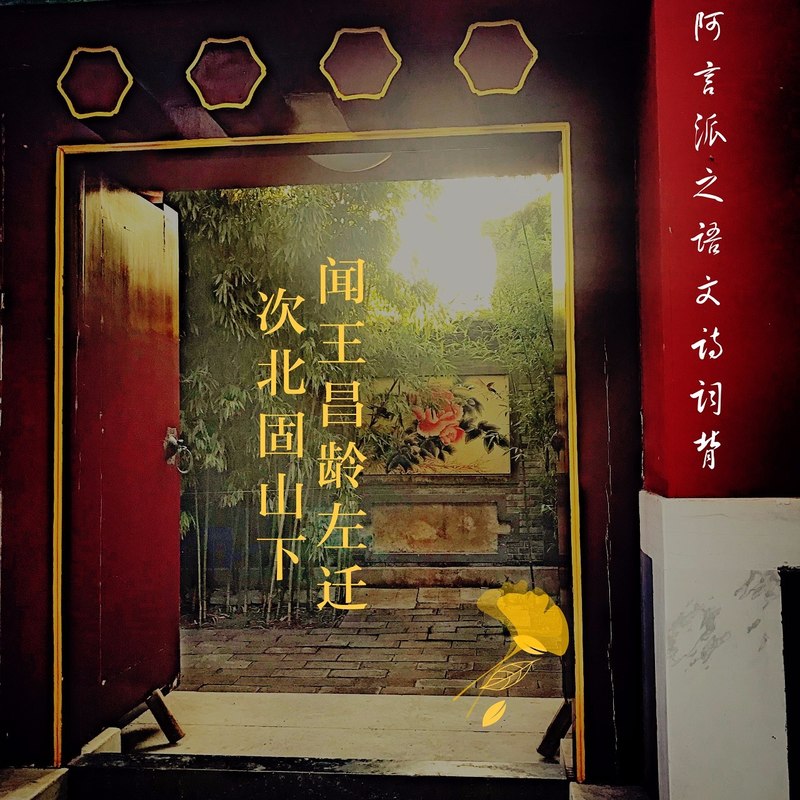 闻王昌龄左迁
次北固山下
阿言派之语文诗词背